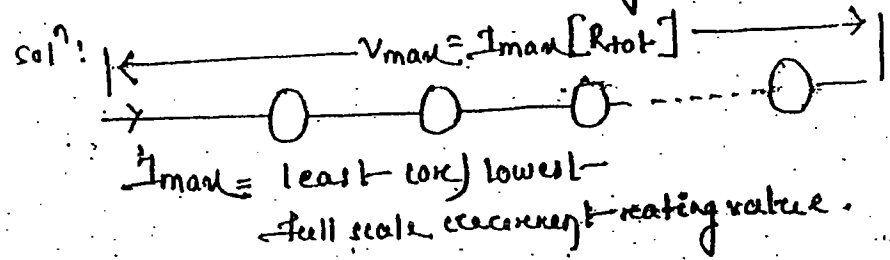 solⁿ:
Vmax = Imax [Rtot]
Imax = least (or) lowest
full scale current rating value.